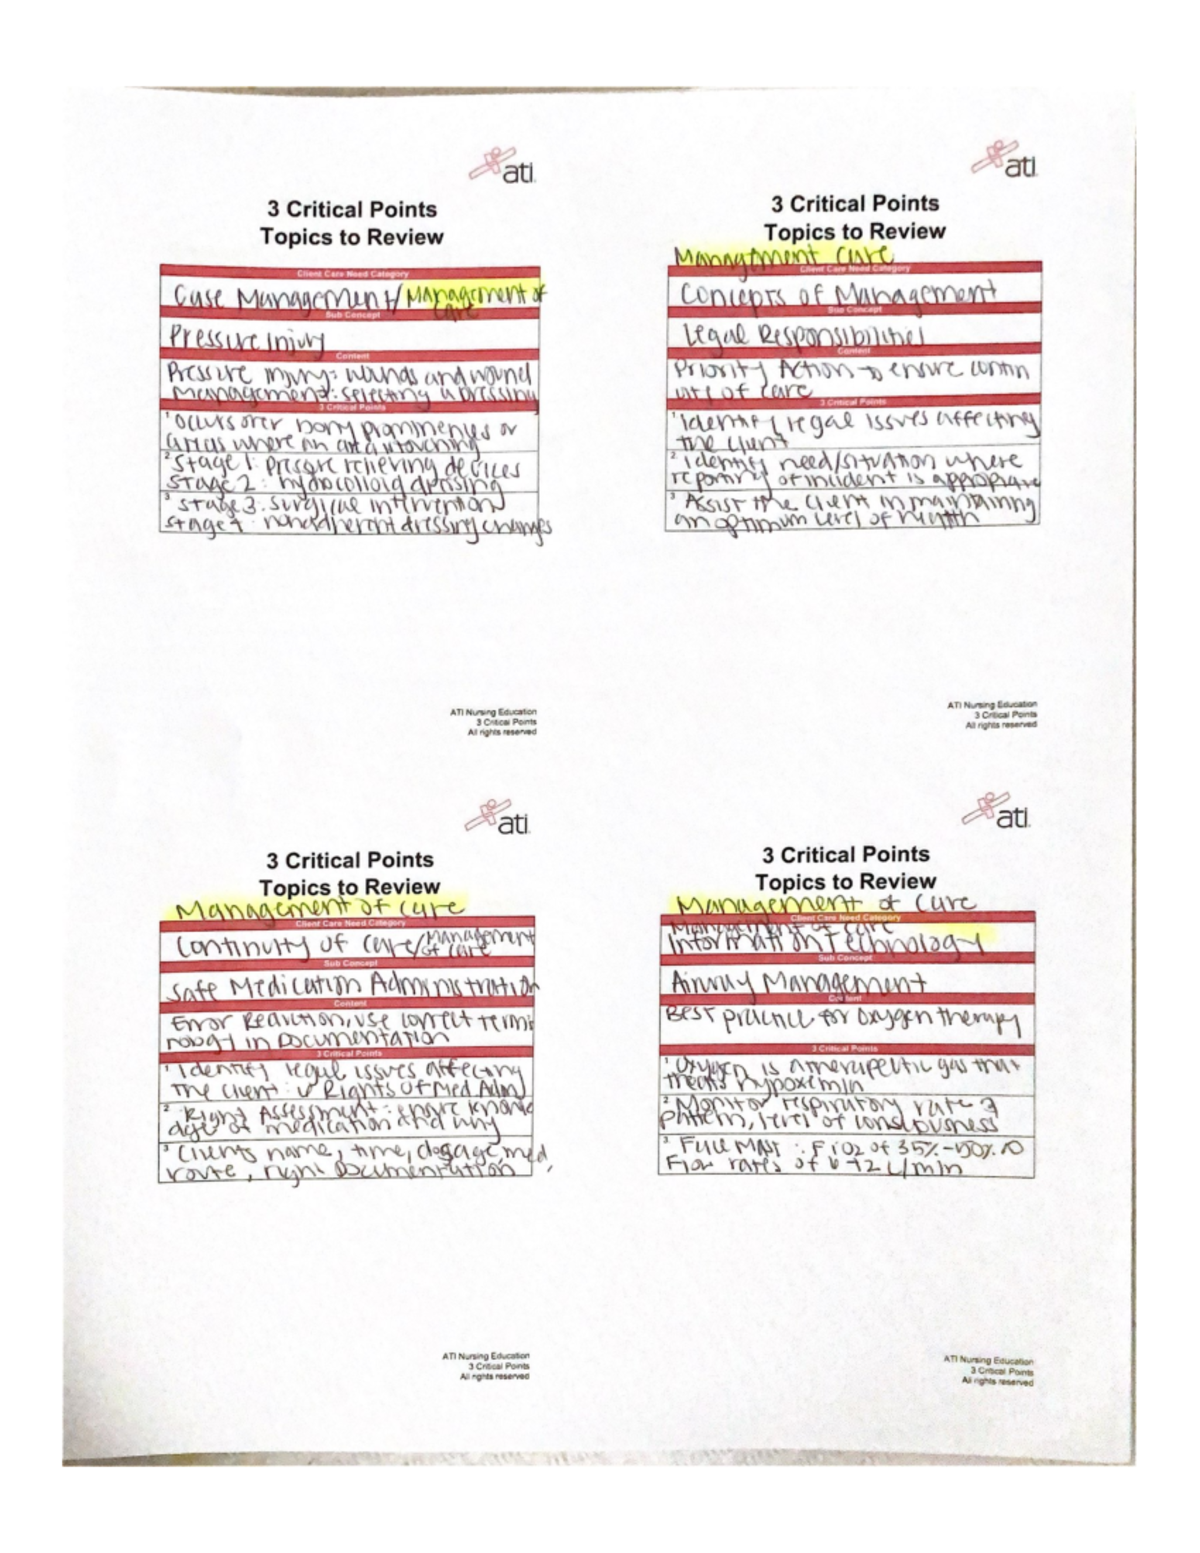 ati
3 Critical Points
Topics to Review
Client Care Need Category
Case Management/Management of
care
Sub Concept
Pressure Injury
Content
Pressure injury: wounds and wound
Management: selecting a dressing
3 Critical Points
1 occurs over bony prominences or
areas where an area is touching
2 Stage 1: pressure relieving devices
Stage 2: hydrocolloid dressing
3 Stage 3: surgical intervention
Stage 4: nonadherent dressing changes
ATI Nursing Education
3 Critical Points
All rights reserved
ati
3 Critical Points
Topics to Review
Management Care
Client Care Need Category
Concepts of Management
Sub Concept
Legal Responsibilities
Content
Priority Action → ensure contin
of care
3 Critical Points
1 Identify legal issues affecting
the client
2 Identify need/situation where
reporting of incident is appropriate
3 Assist the client in maintaining
an optimum level of health
ATI Nursing Education
3 Critical Points
All rights reserved
ati
3 Critical Points
Topics to Review
Management of care
Client Care Need Category
Continuity of care/Management
of care
Sub Concept
Safe Medication Administration
Content
Error Reduction, use correct termi
in Documentation
3 Critical Points
1 Identify legal issues affecting
the client: 6 Rights of Med Adm
2 Right Assessment: ensure knowl
dge of medication and why
3 Clients name, time, dosage, med,
route, right Documentation
ATI Nursing Education
3 Critical Points
All rights reserved
ati
3 Critical Points
Topics to Review
Management of Care
Client Care Need Category
Management of care
Information Technology
Sub Concept
Airway Management
Content
Best practice for Oxygen therapy
3 Critical Points
1 Oxygen is a therapeutic gas that
treats hypoxemia
2 Monitor respiratory rate &
pattern, level of consciousness
3 Face Mask: FiO2 of 35%-50% @
Flow rates of 6-12 L/min
ATI Nursing Education
3 Critical Points
All rights reserved